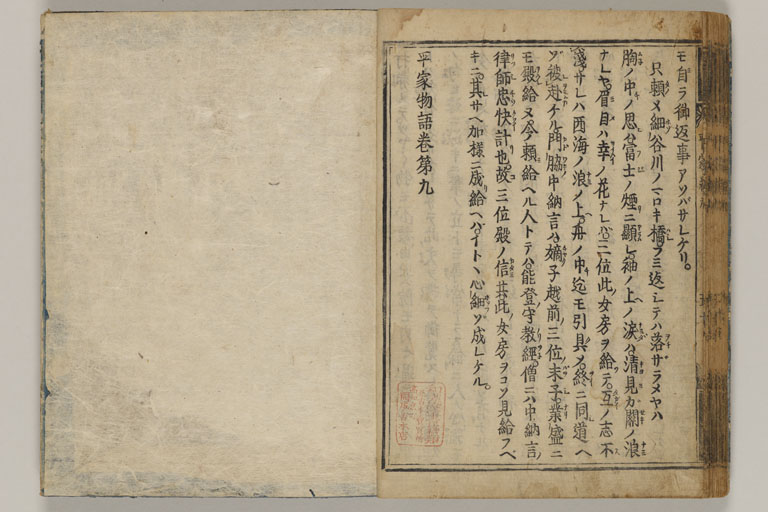 モ自ラ御返事アソバサレケリ。
只頼メ細谷川ノマロキ橋フミ返シテハ落サラメヤハ
胸ノ中ノ思ハ富士ノ煙ニ顕レ袖ノ上ノ涙ハ清見カ關ノ浪
ナレヤ。眉目ハ幸ノ花ナレハ三位此女房ヲ給テ互ノ志不
淺サレハ西海ノ浪ノ上舟ノ中迄モ引具メ終ニ同道ヘ
ソ被赴ケル門脇中納言ハ嫡子越前三位末子業盛ニ
モ後給ヌ今頼給ヘル人トテハ能登守教經僧ニハ中納言
律師忠快計也故三位殿ノ信共此女房ヲコソ見給フヘ
キニ其サヘ加様ニ成給ヘハイトヽ心細ソ成レケル。
平家物語巻第九